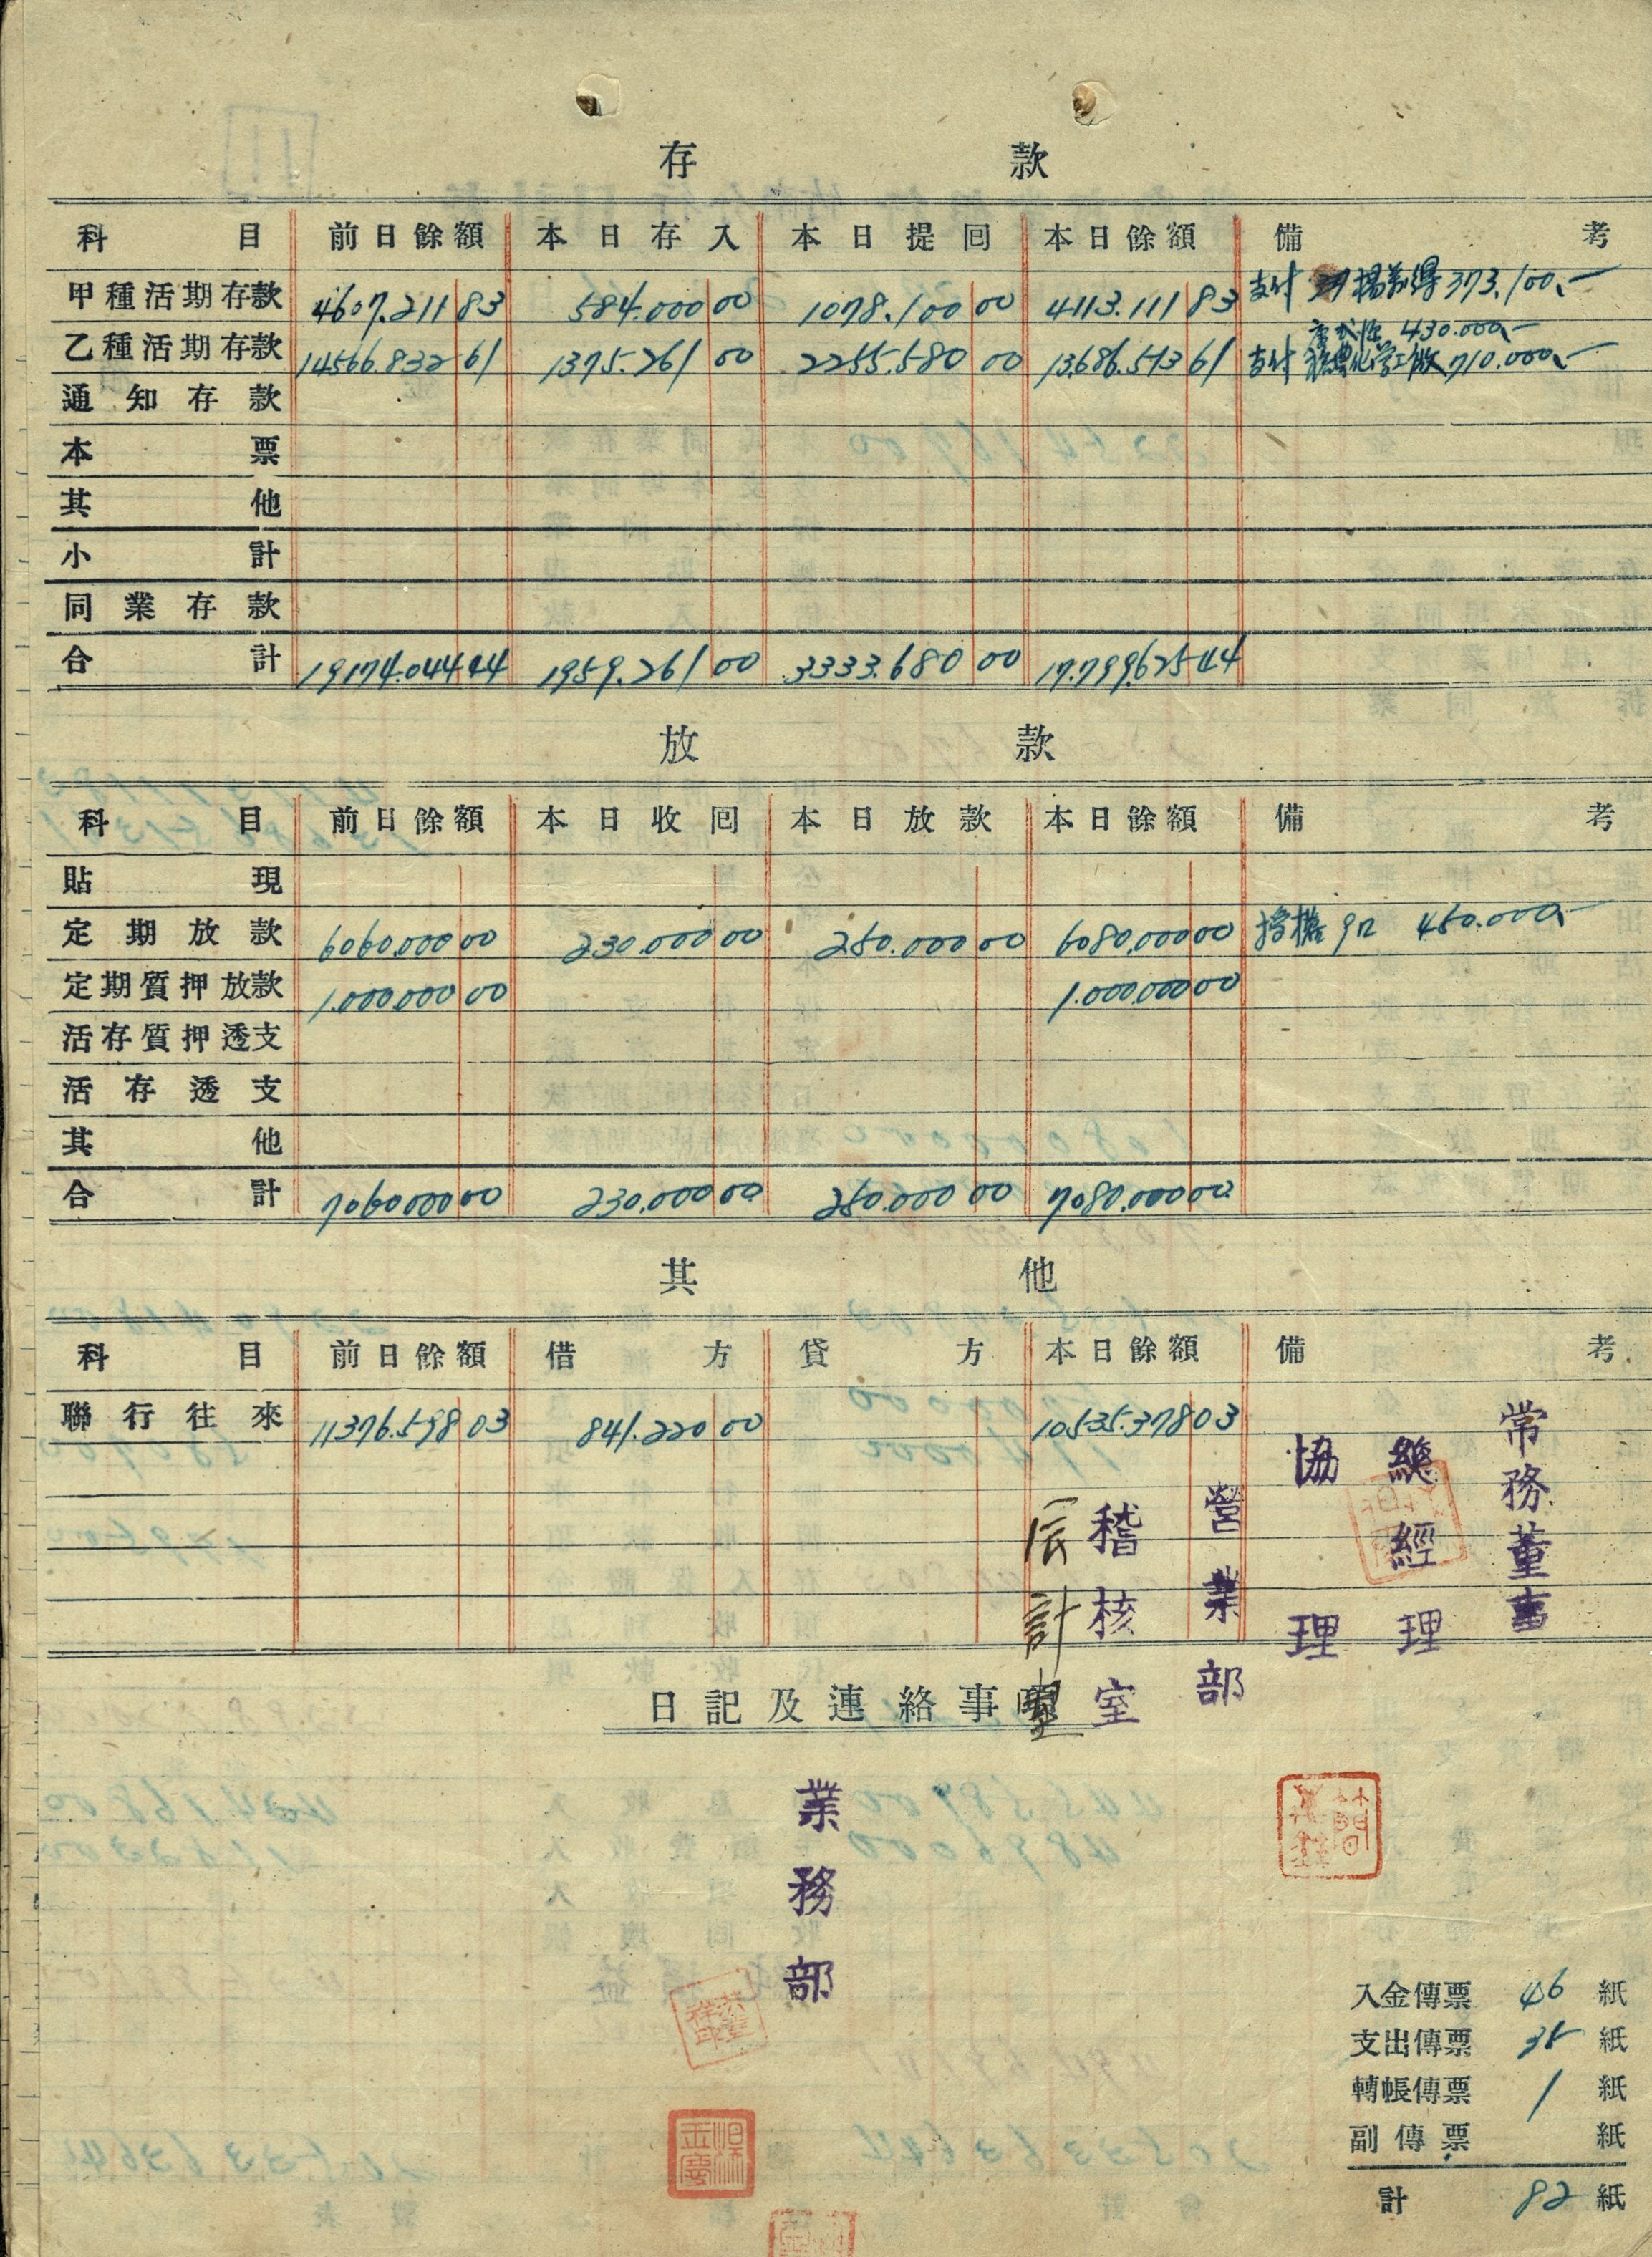 存款
科目 前日餘額 本日存入 本日提囘 本日餘額 備考
甲種活期存款 4607.211 83 584.000 00 1078.100 00 4113.111 83 支付 373.100.—
430.000.—
乙種活期存款 14566.832 61 1375.261 00 2255.580 00 13.686.513 61 支付 710.000.—
通知存款
本票
其他
小計
同業存款
合計 19174.044 44 1959.261 00 3333.680 00 17.799.625 44
放款
科目 前日餘額 本日收囘 本日放款 本日餘額 備考
貼現
定期放款 6060.000 00 230.000 00 250.000 00 6080.000 00 450.000.—
定期質押放款 1.000.000 00 1.000.000 00
活存質押透支
活存透支
其他
合計 7060.000 00 230.000 00 250.000 00 7080.000 00
其他
科目 前日餘額 借方 貸方 本日餘額 備考
聯行往來 11376.598 03 841.220 00 10.535.378 03
常務董事
總經理
協理
營業部
稽核室
日記及連絡事
業務部
入金傳票 46 紙
支出傳票 35 紙
轉帳傳票 1 紙
副傳票 紙
計 82 紙